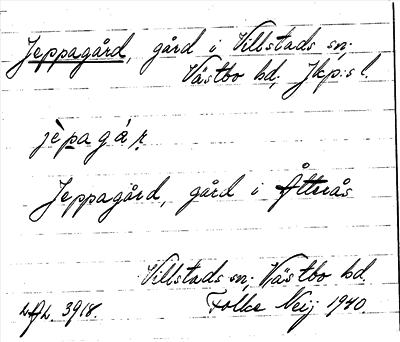 Jeppagård, gård i Villstads sn;
Västbo hd, Jkp:s l.
jèpagár
Jeppagård, gård i Åtterås
Villstads sn; Västbo hd.
3918. Folke Neij 1940.